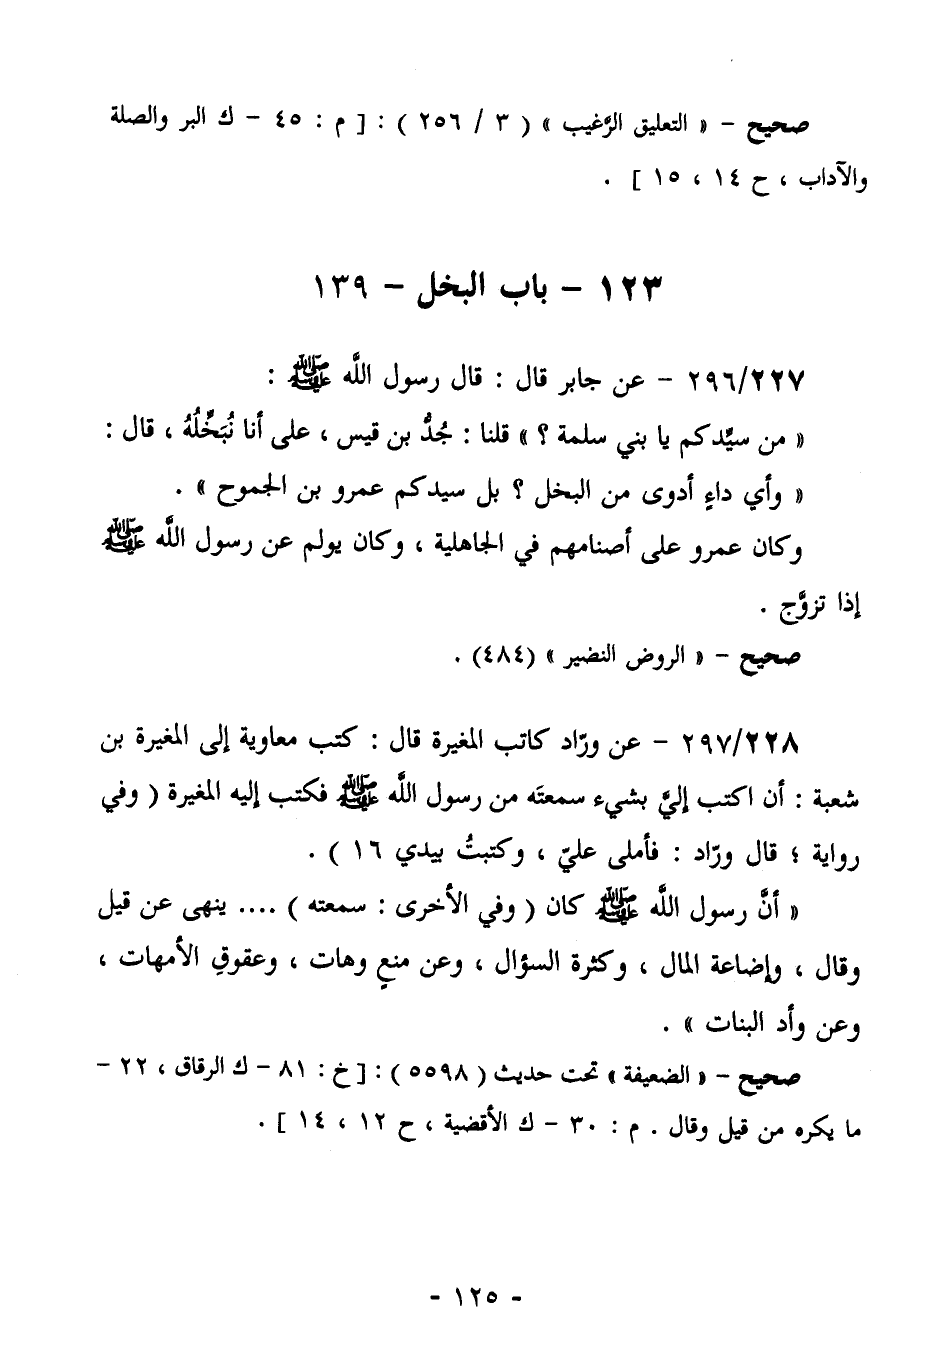 صحيح – « التعليق الرَّغيب » ( ٣ / ٢٥٦ ) : [ م : ٤٥ – ك البر والصلة
والآداب ، ح ١٤ ، ١٥ ] .
١٢٣ – باب البخل – ١٣٩
٢٩٦/٢٢٧ – عن جابر قال : قال رسول اللَّه ﷺ :
« من سيِّدكم يا بني سلمة ؟ » قلنا : جُدُّ بن قيس ، على أنا نُبَخِّلُهُ ، قال :
« وأي داءٍ أدوى من البخل ؟ بل سيدكم عمرو بن الجموح » .
وكان عمرو على أصنامهم في الجاهلية ، وكان يولم عن رسول اللَّه ﷺ
إذا تزوَّج .
صحيح – « الروض النضير » (٤٨٤) .
٢٩٧/٢٢٨ – عن ورّاد كاتب المغيرة قال : كتب معاوية إلى المغيرة بن
شعبة : أن اكتب إليَّ بشيء سمعتَه من رسول اللَّه ﷺ فكتب إليه المغيرة ( وفي
رواية ؛ قال ورّاد : فأملى عليّ ، وكتبتُ بيدي ١٦ ) .
« أنَّ رسول اللَّه ﷺ كان ( وفي الأخرى : سمعته ) .... ينهى عن قيل
وقال ، وإضاعة المال ، وكثرة السؤال ، وعن منعٍ وهات ، وعقوقِ الأمهات ،
وعن وأد البنات » .
صحيح – « الضعيفة » تحت حديث ( ٥٥٩٨ ) : [ خ : ٨١ – ك الرقاق ، ٢٢ –
ما يكره من قيل وقال . م : ٣٠ – ك الأقضية ، ح ١٢ ، ١٤ ] .
- ١٢٥ -